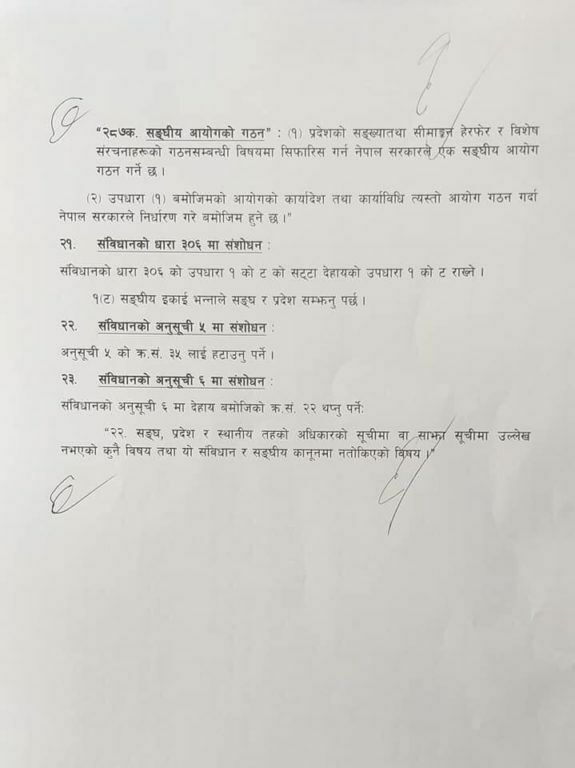 "२८७क. सङ्घीय आयोगको गठन" : (१) प्रदेशको सङ्ख्यातथा सीमाङ्कन हेरफेर र विशेष
संरचनाहरूको गठनसम्बन्धी विषयमा सिफारिस गर्न नेपाल सरकारले एक सङ्घीय आयोग
गठन गर्ने छ ।
(२) उपधारा (१) बमोजिमको आयोगको कार्यादेश तथा कार्याविधि त्यस्तो आयोग गठन गर्दा
नेपाल सरकारले निर्धारण गरे बमोजिम हुने छ ।"
२१. संविधानको धारा ३०६ मा संशोधन :
संविधानको धारा ३०६ को उपधारा १ को ट को सट्टा देहायको उपधारा १ को ट राख्ने ।
१(ट) सङ्घीय इकाई भन्नाले सङ्घ र प्रदेश सम्झनु पर्छ ।
२२. संविधानको अनुसूची ५ मा संशोधन :
अनुसूची ५ को क्र.सं. ३५ लाई हटाउनु पर्ने ।
२३. संविधानको अनुसूची ६ मा संशोधन :
संविधानको अनुसूची ६ मा देहाय बमोजिको क्र.सं. २२ थप्नु पर्नेः
"२२. सङ्घ, प्रदेश र स्थानीय तहको अधिकारको सूचीमा वा साझा सूचीमा उल्लेख
नभएको कुनै विषय तथा यो संविधान र सङ्घीय कानूनमा नतोकिएको विषय ।"